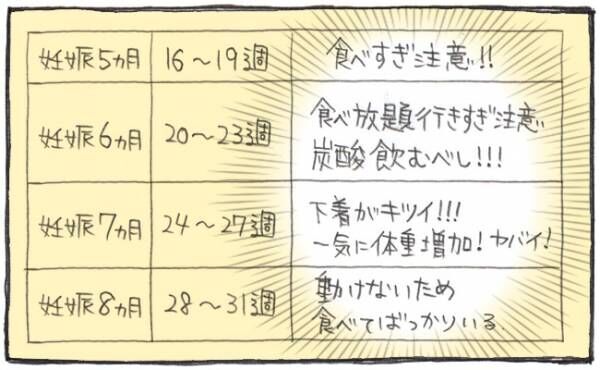 妊娠5ヵ月 16〜19週 食べすぎ注意!!
妊娠6ヵ月 20〜23週 食べ放題行きすぎ注意
炭酸飲むべし!!!
妊娠7ヵ月 24〜27週 下着がキツイ!!!
一気に体重増加!ヤバイ!
妊娠8ヵ月 28〜31週 動けないため
食べてばっかりいる